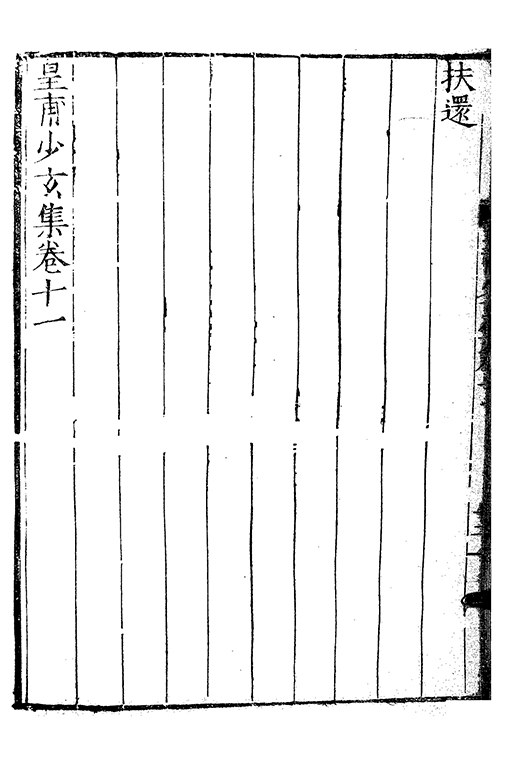 扶還
皇甫少玄集卷十一